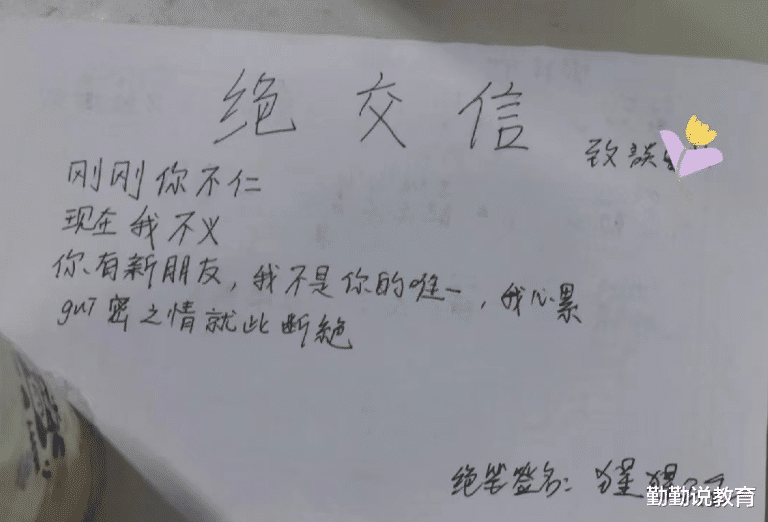 绝交信
致談
刚刚你不仁
现在我不义
你有新朋友，我不是你的唯一，我心累
gui密之情就此断絶
绝笔签名：猩猩
勤勤说教育